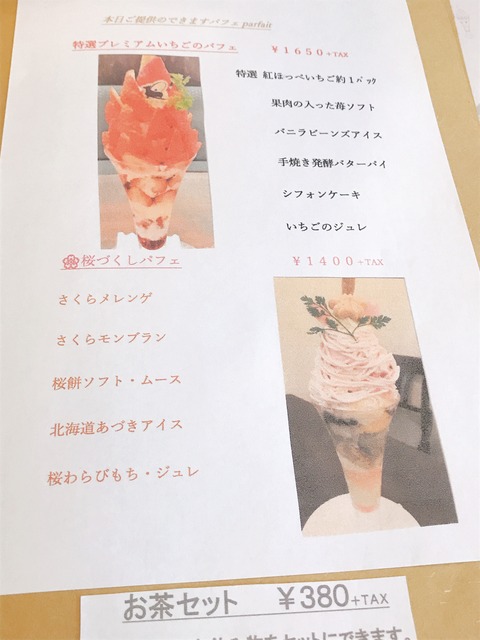 本日ご提供のできますパフェ parfait
特選プレミアムいちごのパフェ ￥1650+TAX
特選 紅ほっぺいちご約１パック
果肉の入った苺ソフト
バニラビーンズアイス
手焼き発酵バターパイ
シフォンケーキ
いちごのジュレ
桜づくしパフェ ￥1400+TAX
さくらメレンゲ
さくらモンブラン
桜餅ソフト・ムース
北海道あづきアイス
桜わらびもち・ジュレ
お茶セット ￥380+TAX
物をセットにできます。